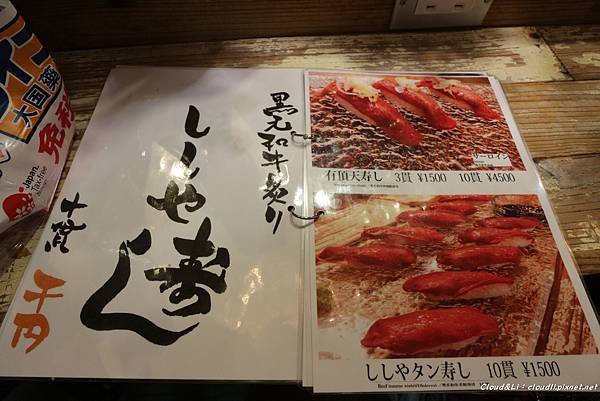 大国薬
免税
Japan.
Tax-free
黒毛和牛炙り
ししゃ寿し
十貫
千円
サーロイン
有頂天寿し 3貫 ¥1500 10貫 ¥4500
ししやタン寿し 10貫 ¥1500
Cloud&Li : cloudli.pixnet.net